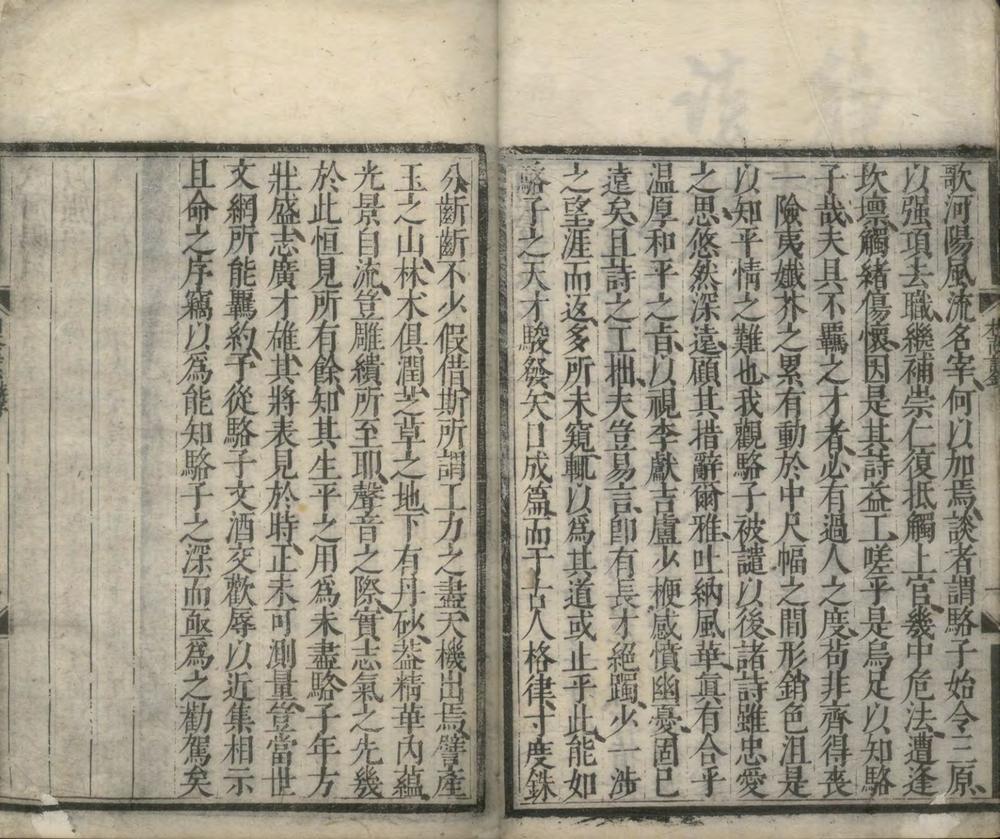 歌河陽風流名宰何以加焉談者謂駱子始令三原
以强項去職繼補崇仁復抵觸上官幾中危法遭逢
坎壈觸緒傷懷因是其詩益工嗟乎是烏足以知駱
子哉夫具不羈之才者必有過人之度苟非齊得喪
一險夷孅芥之累有動於中尺幅之間形銷色沮是
以知平情之難也我觀駱子被譴以後諸詩雖忠愛
之思悠然深遠顧其措辭爾雅吐納風華眞有合乎
温厚和平之旨以視李獻吉盧少楩感憤幽憂固已
遠矣且詩之工拙夫豈易言卽有長才絕躅少一涉
之望涯而返多所未窺輒以爲其道或止乎此能如
駱子之天才駿發矢口成篇而于古人格律寸度銖
分齗齗不少假借斯所謂工力之盡天機出焉譬產
玉之山林木俱潤芝草之地下有丹砂蓋精華內蘊
光景自流豈雕繢所至耶聲音之際實志氣之先幾
於此恒見所有餘知其生平之用爲未盡駱子年方
壯盛志廣才雄其將表見於時正未可測量豈當世
文網所能羈約予從駱子文酒交歡辱以近集相示
且命之序竊以爲能知駱子之深而亟爲之勸駕矣